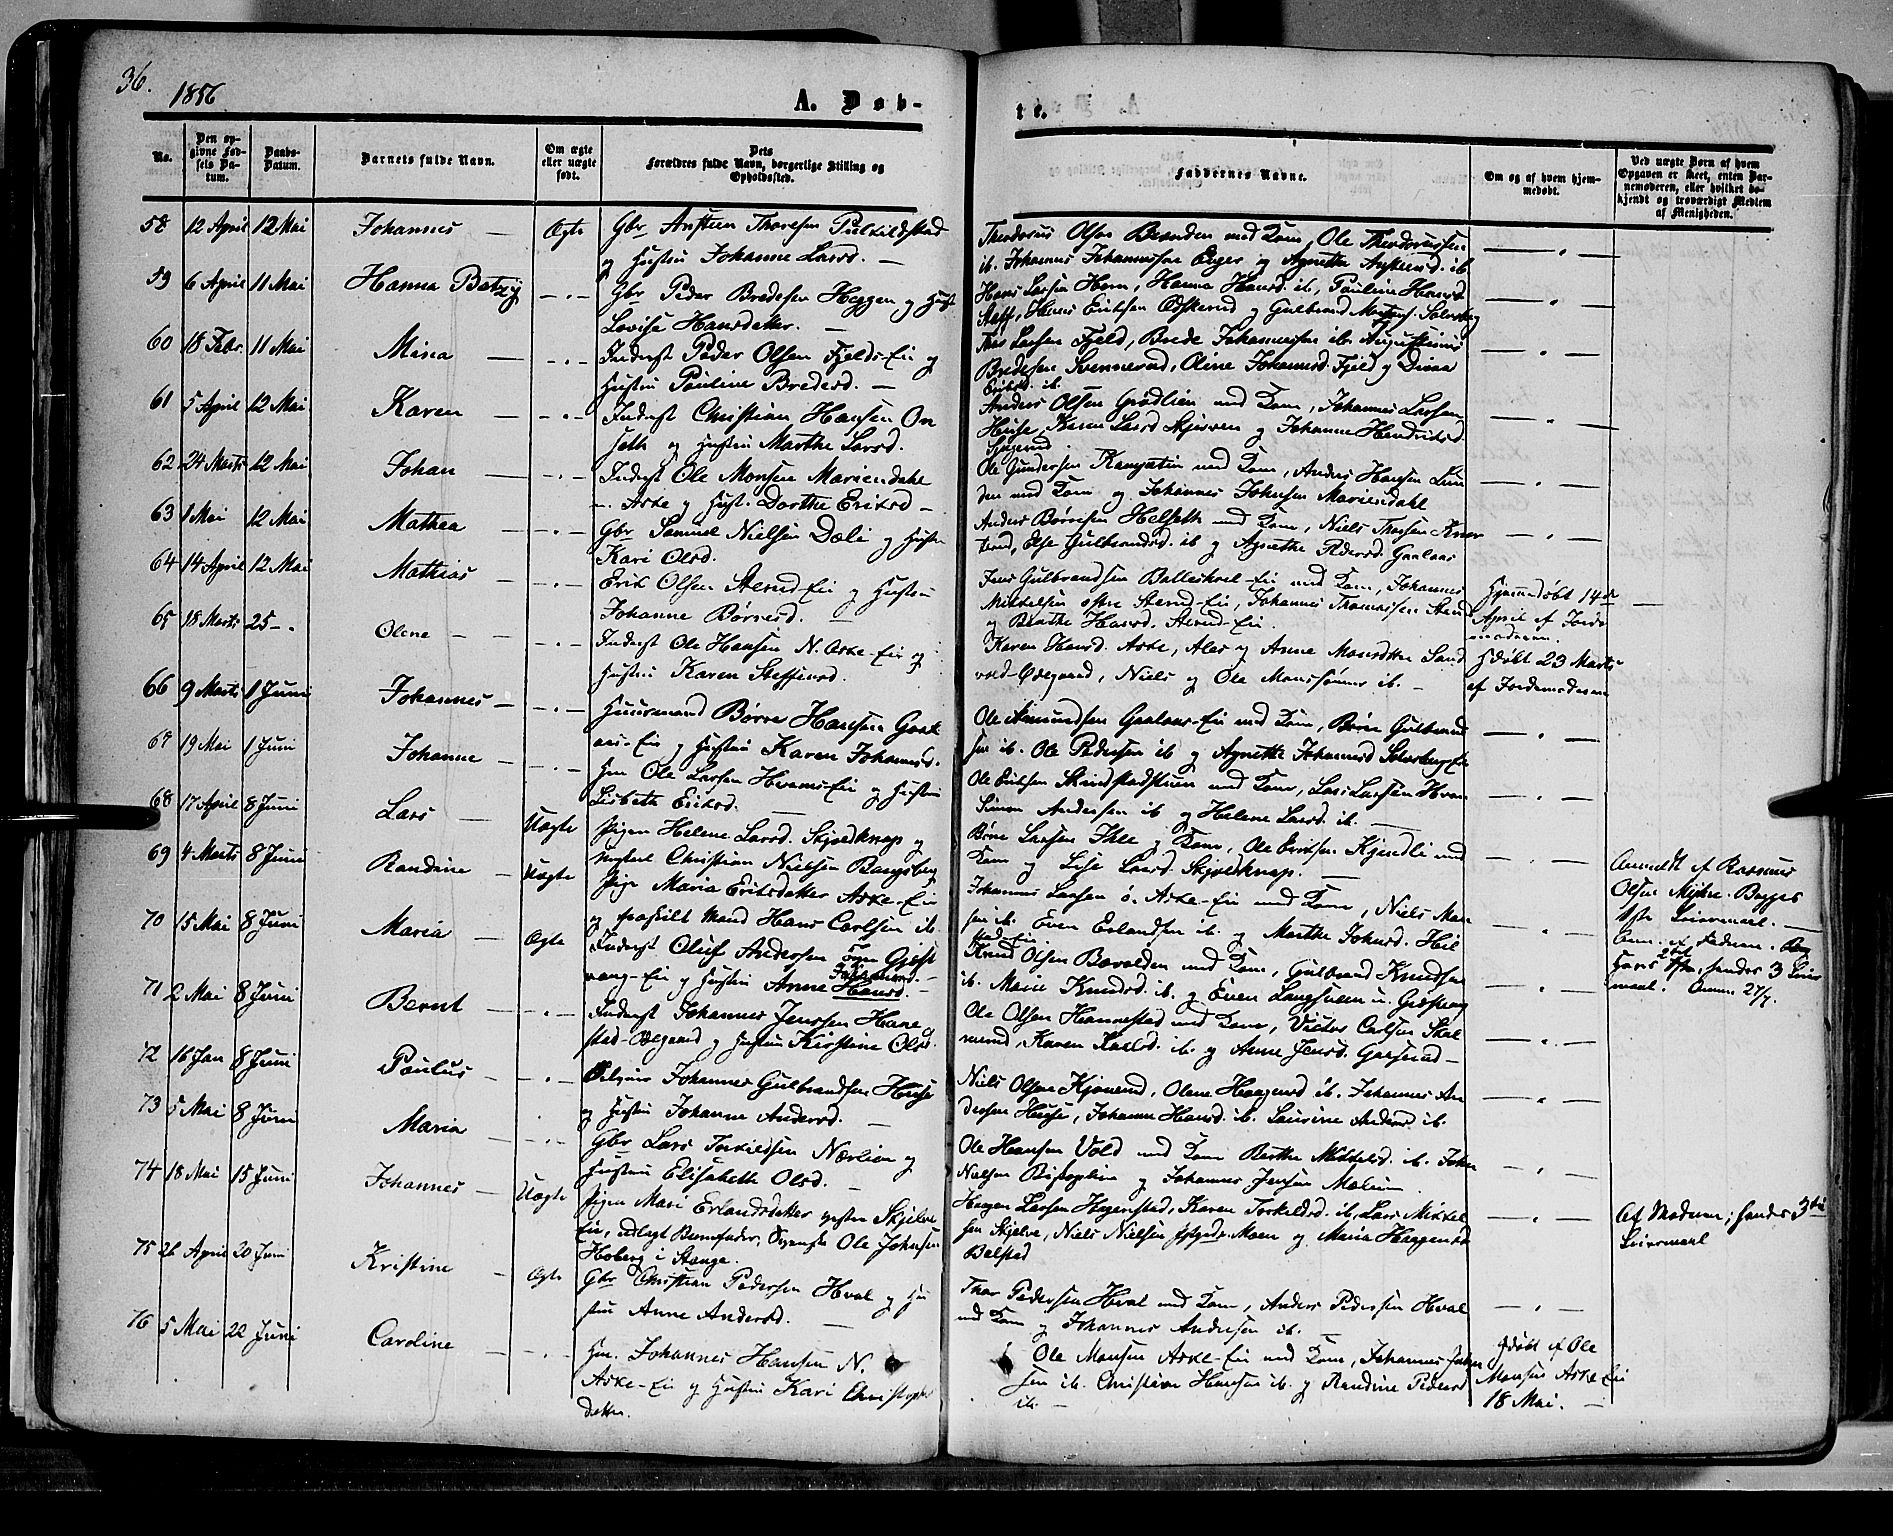 36.
1856
A. Døb-
te.
No.
Den op-
givne Fød-
sels Da-
tum.
Daabs-
Datum.
Barnets fulde Navn.
Om ægte
eller uægte
født.
Dets
Forældres fulde Navn, borgerlige Stilling og
Opholdssted.
Faddernes Navne.
Om og af hvem hjem-
medøbt.
Ved uægte Børn af hvem
Opgaven er skeet, enten Bar-
nemoderen, eller hvilket be-
kjendt og troværdigt Medlem
af Menigheden.
58 12 April 12 Mai Johannes — Ægte Gbr Austen Thoresen
og Hustru Johanne Larsd. —
Theodorus Olsen Brænden med Kone, Ole Theodorussen
ib. Johannes Johannessen Enger og Agnethe Austensd. ib.
59 6 April 11 Mai Hanna Betzy — . — Gbr Peder Bredesen Heggen og Hust
Lovise Hansdatter. —
Hans Larsen Horn, Hanna Hansd. ib, Pauline Hansd
Hans Eriksen og Gulbrand Mortens. Solberg
60 18 Febr. 11 Mai Mina — . — Inderst Peder Olsen Fjelds-Eie og
Hustru Pauline Bredesd. —
Thor Larsen Fjeld, Brede Johannessen ib. Augustinus
Bredesen Svennerud, Oline Johannesd. Fjeld og Dina
Eriksd. ib.
61 5 April 12 Mai Karen — . — Inderst Christian Hansen On
seth og Hustru Marthe Larsd.
Anders Olsen Grødlien med Kone, Johannes Larsen
Huse, Karen Larsd Skjerven og Johanne Hendriksd
62 24 Marts 12 Mai Johan — . — Inderst Ole Monsen Mariendahl
— . Aske og Hust. Dorthe Eriksd —
Ole Gundersen med Kone, Anders Hansen Lun
den med Kone og Johannes Johnsen Mariendahl
63 1 Mai 12 Mai Mathea — . — Gbr Samuel Nielsen Dæli og Hustru
Kari Olsd.
Anders Børresen Helseth med Kone, Niels Thorsen
Else Gulbrandsd. ib og Agnethe Pedersd. Gaalaas
64 14 April 12 Mai Mathias — . — Erik Olsen Stenrud-Eie og Hustru
Johanne Børresd. —
Jens Gulbrandsen Balleshoel-Eie med Kone, Johannes
Mikkelsen østre Stenrud-Eie, Johannes Thomassen Stenr
og Berthe Hansd. Stenrud-Eie.
Hjemmedøbt 14de
April af Jorde-
moderen.
65 18 Marts 25 — . Olene — — . — Inderst Ole Hansen N. Aske-Eie og
Hustru Karen Steffensd.
Karen Hansd. Aske, Alex og Anne Monsdatter Sand
vold-Ødegaard, Niels og Ole Monssønner ib. —
Hdøbt 23 Marts
af Jordemoderen
66 9 Marts 1 Juni Johannes — . — Huusmand Børre Hansen Gaal
aas-Eie og Hustru Karen Johannesd.
Ole Amundsen Gaalaas-Eie med Kone, Børre Gulbrand
sen ib. Ole Pedersen ib og Agnethe Johannesd Solberg Eie
67 19 Mai 1 Juni Johanne — . — Hm Ole Larsen Hvams-Eie og Hustru
Lisbeth Eriksd. —
Ole Eriksen Skindstadstuen med Kone, Lars Larsen Hvam
Simen Andersen ib og Helene Larsd. ib. —
68 17 April 8 Juni Lars — Uægte Pigen Helene Larsd. Skjoldknap og
Ungkarl Christian Nielsen Bangsberg
Børre Larsen Ihle og Kone, Ole Eriksen Kjendli med
Kone og Lise Larsd. Skjoldknap. —
Anmeldt af Rasmus
Olsen Bagges
1ste Leiermaal. —
69 4 Marts 8 Juni Randine — Uægte Pige Maria Eriksdatter Aske-Eie
og fraskilt Mand Hans Carlsen ib.
Johannes Larsen ø. Aske-Eie med Kone, Niels Mon
sen ib. Even Erlandsen ib. og Marthe Johnsd. Hil
sted-Eie
Anm. af Faderen.
Hans 2det, hendes 3 Leier
maal. Anm. 27/7.
70 15 Mai 8 Juni Maria — Ægte Inderst Oluf Andersen Gjøst
vang-Eie og Hustru Anne Johannesd. Hansd. —
Knud Olsen Bævolden med Kone, Gulbrand Knudsen
ib. Marie Knudsd. ib. og Even Langsveen u. Gjøstvang
71 2 Mai 8 Juni Bernt — . — Inderst Johannes Jenssen Hane
sted-Ødegaard og Hustru Kirstine Olsd.
Ole Olsen Hannestad med Kone, Victor Carlsen Skel
merud, Karen Karlsd. ib. og Anne Jensd. Gaasrud —
72 16 Jan 8 Juni Paulus — . — Selveier Johannes Gulbrandsen Huse
og Hustru Johanne Andersd. —
Niels Olsen Kjonerud, Olene Haagensd ib. Johannes An
dersen Huse, Johanne Hansd. ib. Laurine Andersd ib.
73 5 Mai 8 Juni Maria — . — Gbr Lars Torkildsen Nærlien og
Hustru Elisabeth Olsd. —
Ole Hansen Vold med Kone Berthe Mikkelsd. ib. John
Nielsen Bishoplien og Johannes Jensen Mælum
74 18 Mai 15 Juni Johannes — Uægte Pigen Mari Erlandsdatter vestre Skjelve
Eie, udlagt Barnefader, Ole Johnsen
Hoberg i Stange.
Haagen Larsen Hagenstad, Karen Torkelsd. ib, Lars Mikkel
sen Skjelve, Niels Nielsen Moen og Maria Haagensd
Belstad
Af Moderen; hendes 3die
Leiermaal
75 26 April 20 Juni Kristine — Ægte Gbr Christian Pedersen Hval og Hu
stru Anne Andersd. —
Thor Pedersen Hval med Kone, Anders Pedersen Hval
med Kone og Johannes Andersen ib.
76 5 Mai 22 Juni Caroline — . — Hm. Johannes Hansen N.
Aske-Eie og Hustru Kari Christophers
datter.
Ole Monsen Aske-Eie med Kone, Johannes
sen ib. Christian Hansen ib. og Randine Pedersd
ib. —
Hdøbt af Ole
Monsen Aske Eie
18 Mai. —